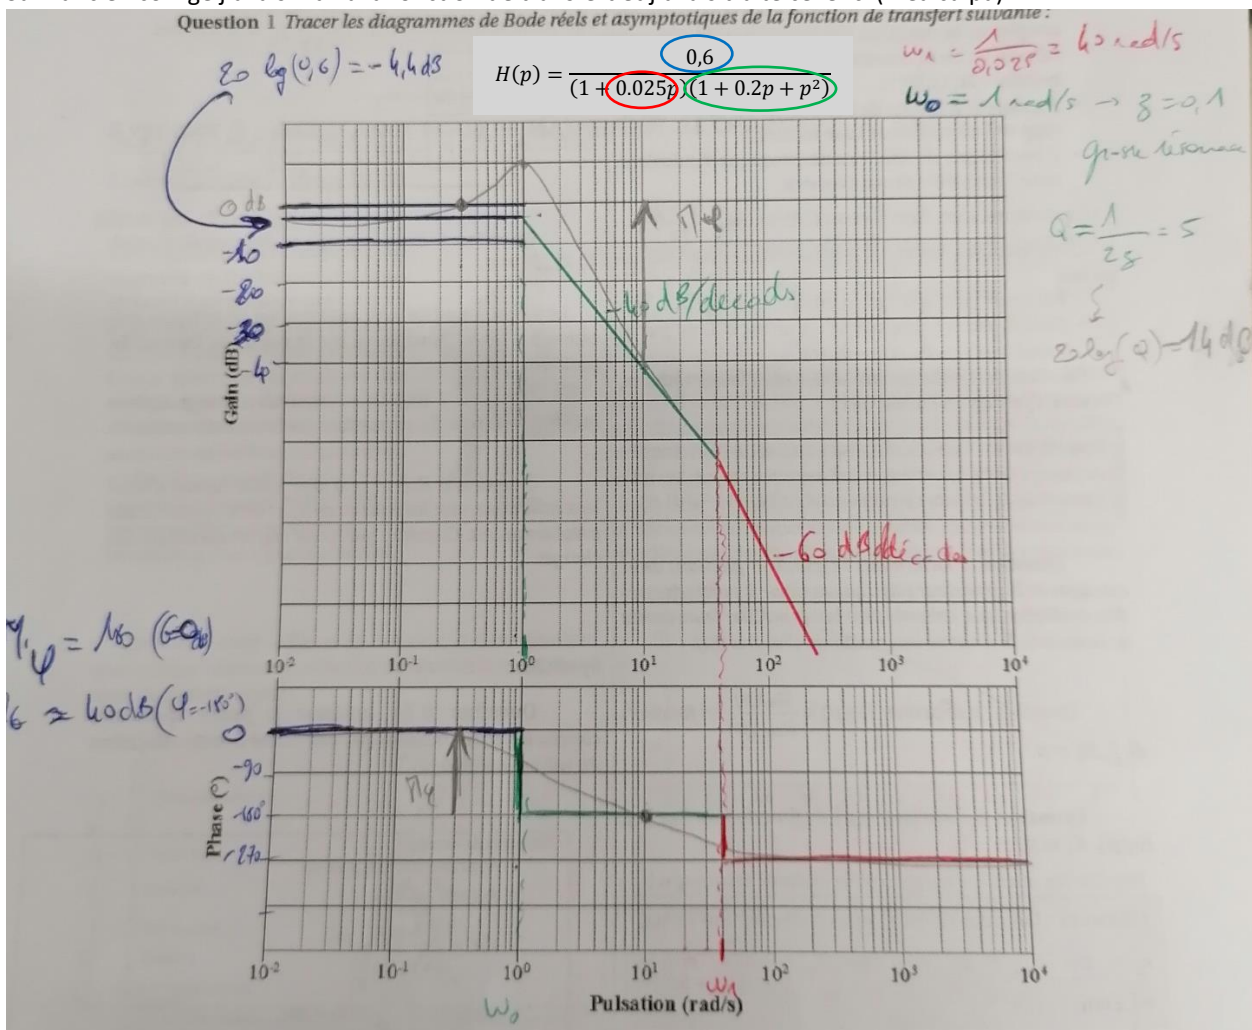 Question 1 Tracer les diagrammes de Bode réels et asymptotiques de la fonction de transfert suivante :
20 log(0,6) = -4,4 dB
H(p) = 0,6 / (1 + 0.025p)(1 + 0.2p + p²)
ω1 = 1/0,025 = 40 rad/s
ω0 = 1 rad/s → z = 0,1
Q = 1/2z = 5
20 log(Q) = 14 dB
0 dB
-10
-20
-30
-40
Gain (dB)
Mφ
-40 dB/decade
-60 dB/décades
10⁻² 10⁻¹ 10⁰ 10¹ 10² 10³ 10⁴
Mφ = 180 (G=0dB)
≈ 40dB (φ=-180°)
0
-90
-180°
-270
Phase (°)
Mφ
10⁻² 10⁻¹ 10⁰ 10¹ 10² 10³ 10⁴
ω0 Pulsation (rad/s) ω1